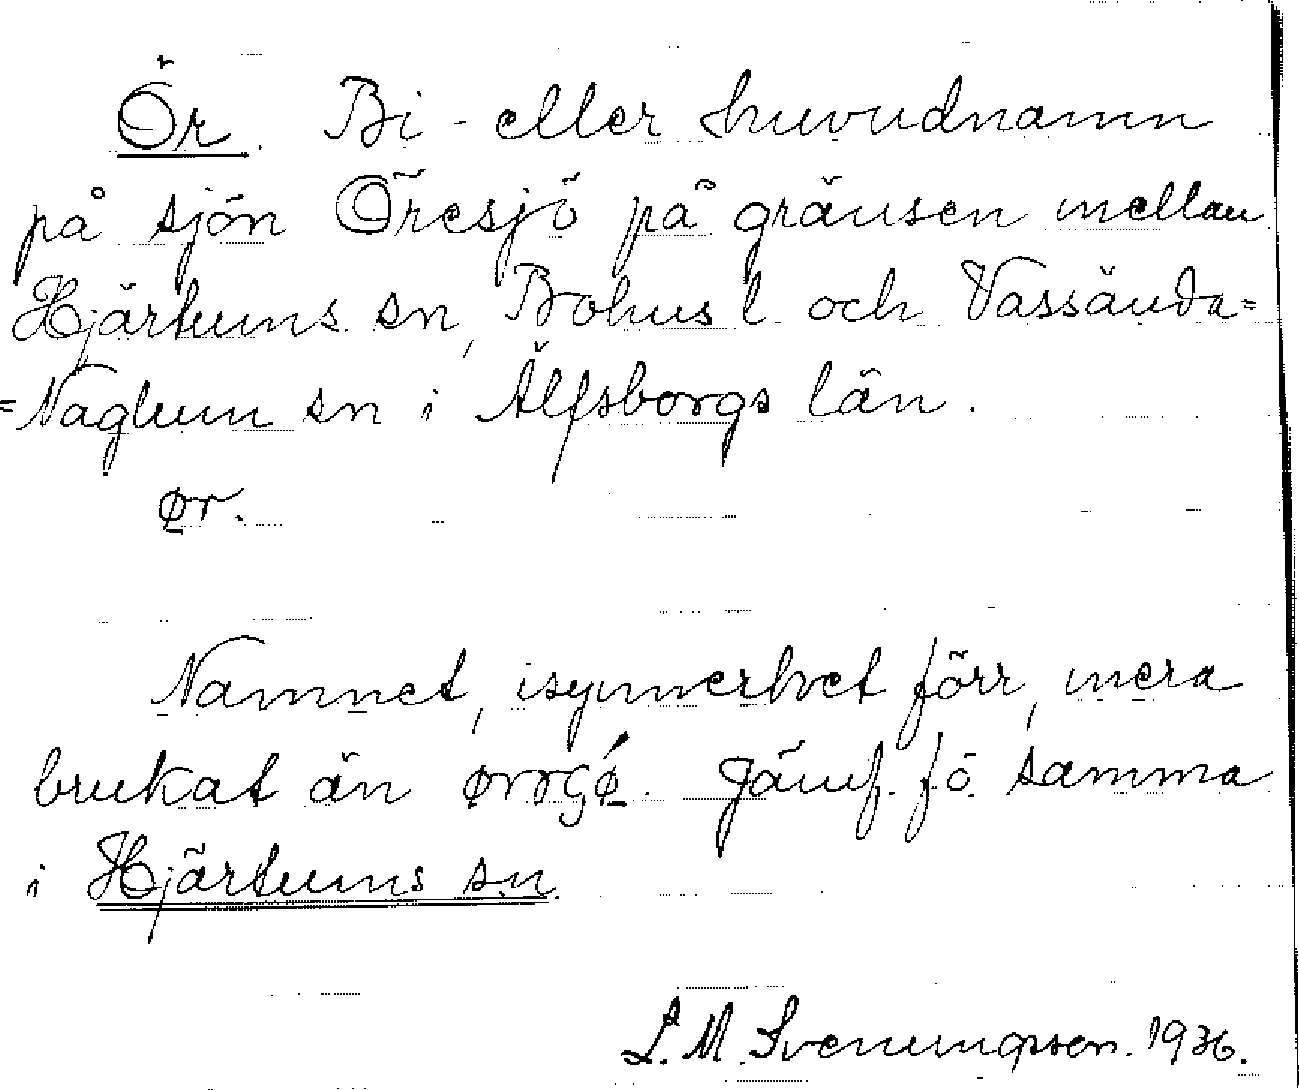 Ör. Bi- eller huvudnamn
på sjön Öresjö på gränsen mellan
Hjärtums sn, Bohus l och Vassända=
=Naglum sn i Älfsborgs län.
ør.
Namnet, isynnerhet förr, mera
brukat än Jämf. fö. samma
i Hjärtums sn
L. M. Svenungsson. 1936.